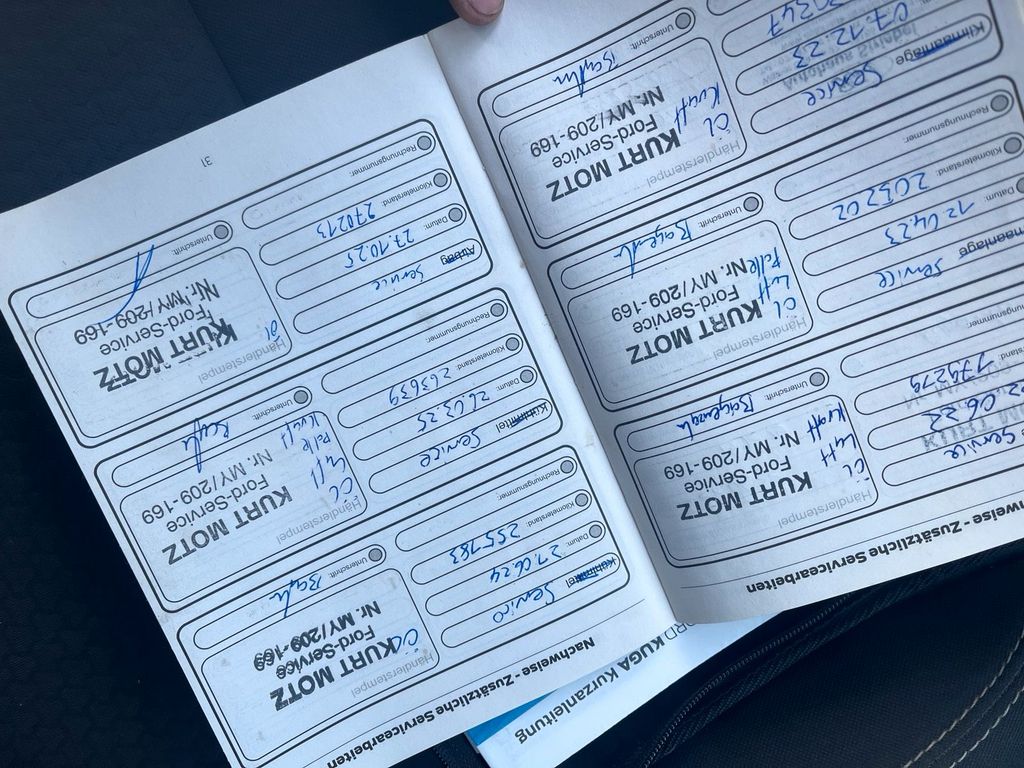 hweise - Zusätzliche Servicearbeiten
Service
06.22
179279
Händlerstempel
Öl
KURT MOTZ
Luft
Ford-Service
Kraft
Nr. MY/209-169
Unterschrift:
maanlage
Service
Datum: 12.04.23
Kilometerstand: 203202
Rechnungsnummer:
Händlerstempel
Öl
KURT MOTZ
Luft
Ford-Service
Nr. MY/209-169
Unterschrift:
Klimaanlage
Service
07.12.23
20347
Händlerstempel
Öl
KURT MOTZ
Kraft
Ford-Service
Nr. MY/209-169
Unterschrift:
Nachweise - Zusätzliche Servicearbeiten
Kühlmittel
Service
Datum: 27.06.24
Kilometerstand: 255783
Rechnungsnummer:
Händlerstempel
Öl
KURT MOTZ
Ford-Service
Nr. MY/209-169
Unterschrift:
Kühlmittel
Service
Datum: 26.03.25
Kilometerstand: 263639
Rechnungsnummer:
Händlerstempel
Öl
KURT MOTZ
Luft
Ford-Service
Kraft
Nr. MY/209-169
Unterschrift:
Airbag
Service
Datum: 27.10.25
Kilometerstand: 270213
Rechnungsnummer:
Händlerstempel
Öl
KURT MOTZ
Ford-Service
Nr. MY/209-169
Unterschrift:
31
ORD KUGA Kurzanleitung